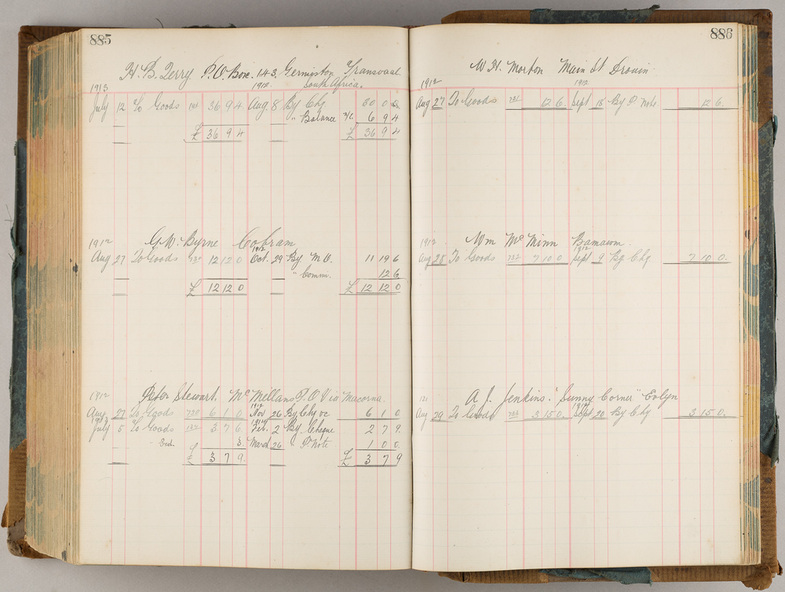 885
H. B. Terry P.O. Box 143 Germiston Transvaal
South Africa
1913 1913
July 12 To Goods 36 9 4 Aug 8 By Chq 30 0 0
" Balance 6 9 4
£ 36 9 4 £ 36 9 4
G. W. Byrne Cobram
1912 1912
Aug 27 To Goods 12 12 0 Oct 29 By M.O. 11 19 6
" Comm. 12 6
£ 12 12 0 £ 12 12 0
Peter Stewart McMillans P.O. Via Macorna
1912 1912
Aug 27 To Goods 6 1 0 Nov 26 By Chq 6 1 0
July 5 To Goods 3 7 6 2 By Cheque 2 7 9
3 26 " P. Note 1 0 0
£ 3 7 9 £ 3 7 9
886
W. H. Morton Main St Drouin
1912 1912
Aug 27 To Goods 12 6 Sept 18 By P. Note 12 6
Wm McMinn Bamawm
1912 1912
Aug 28 To Goods 7 10 0 Sept 9 By Chq 7 10 0
A. J. Jenkins "Sunny Corner" Evlyn
Aug 29 To Goods 3 15 0 Sept 28 By Chq 3 15 0